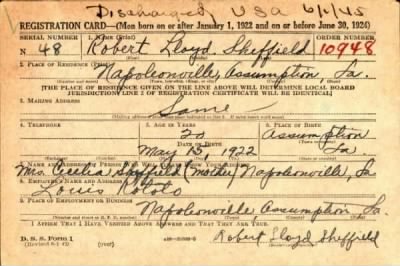 Discharged, USA 6/1/45
REGISTRATION CARD—(Men born on or after January 1, 1922 and on or before June 30, 1924)
SERIAL NUMBER 1. NAME (Print) ORDER NUMBER
N 48 Robert Lloyd Sheffield 10948
2. PLACE OF RESIDENCE (Print)
Napoleonville, Assumption, La.
[THE PLACE OF RESIDENCE GIVEN ON THE LINE ABOVE WILL DETERMINE LOCAL BOARD
JURISDICTION; LINE 2 OF REGISTRATION CERTIFICATE WILL BE IDENTICAL]
3. MAILING ADDRESS
Same
4. TELEPHONE 5. AGE IN YEARS 6. PLACE OF BIRTH
20 Assumption
DATE OF BIRTH
May 15, 1922 La
7. NAME AND ADDRESS OF PERSON WHO WILL ALWAYS KNOW YOUR ADDRESS
Mrs. Cecilia Sheffield (Mother) Napoleonville, La
8. EMPLOYER'S NAME AND ADDRESS
Louis
9. PLACE OF EMPLOYMENT OR BUSINESS
Napoleonville, Assumption La.
I AFFIRM THAT I HAVE VERIFIED ABOVE ANSWERS AND THAT THEY ARE TRUE.
D. S. S. Form 1
Robert Lloyd Sheffield